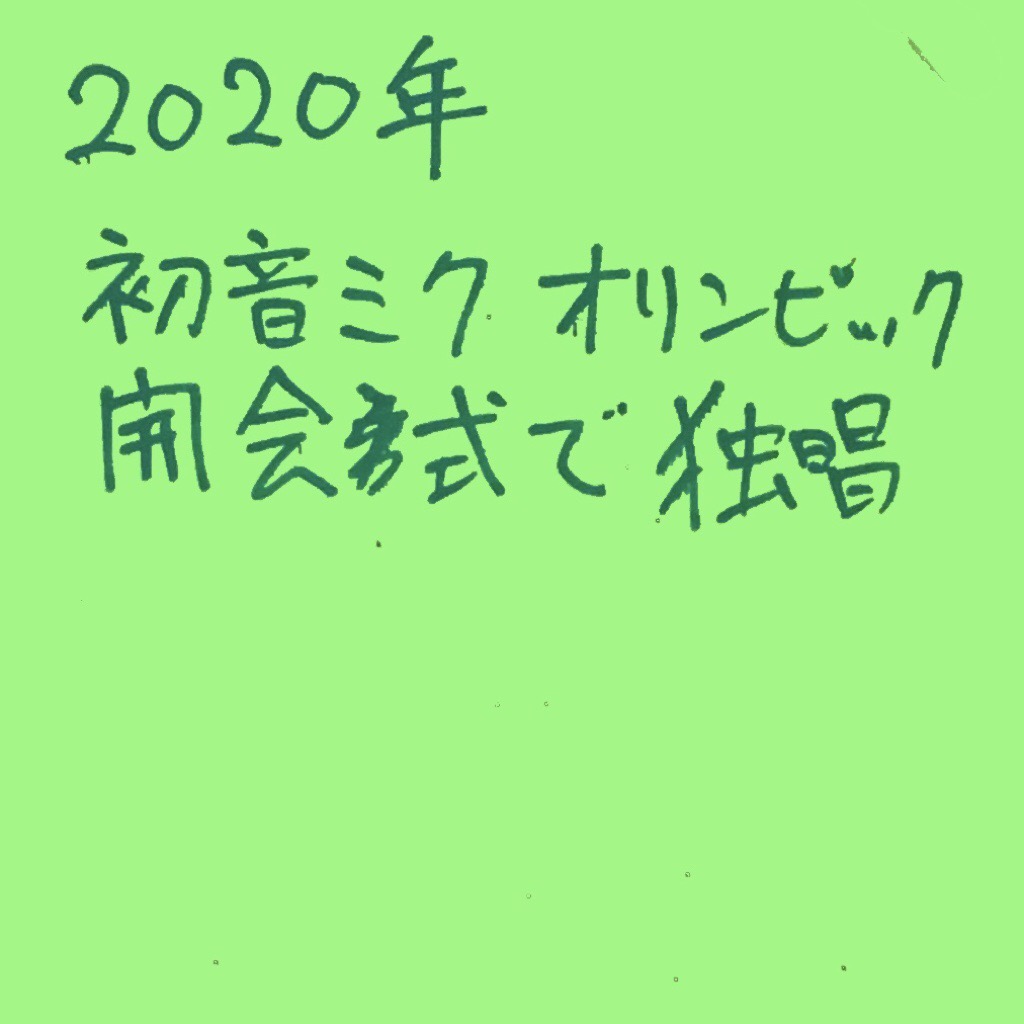 2020年
初音ミク オリンピック
開会式で独唱